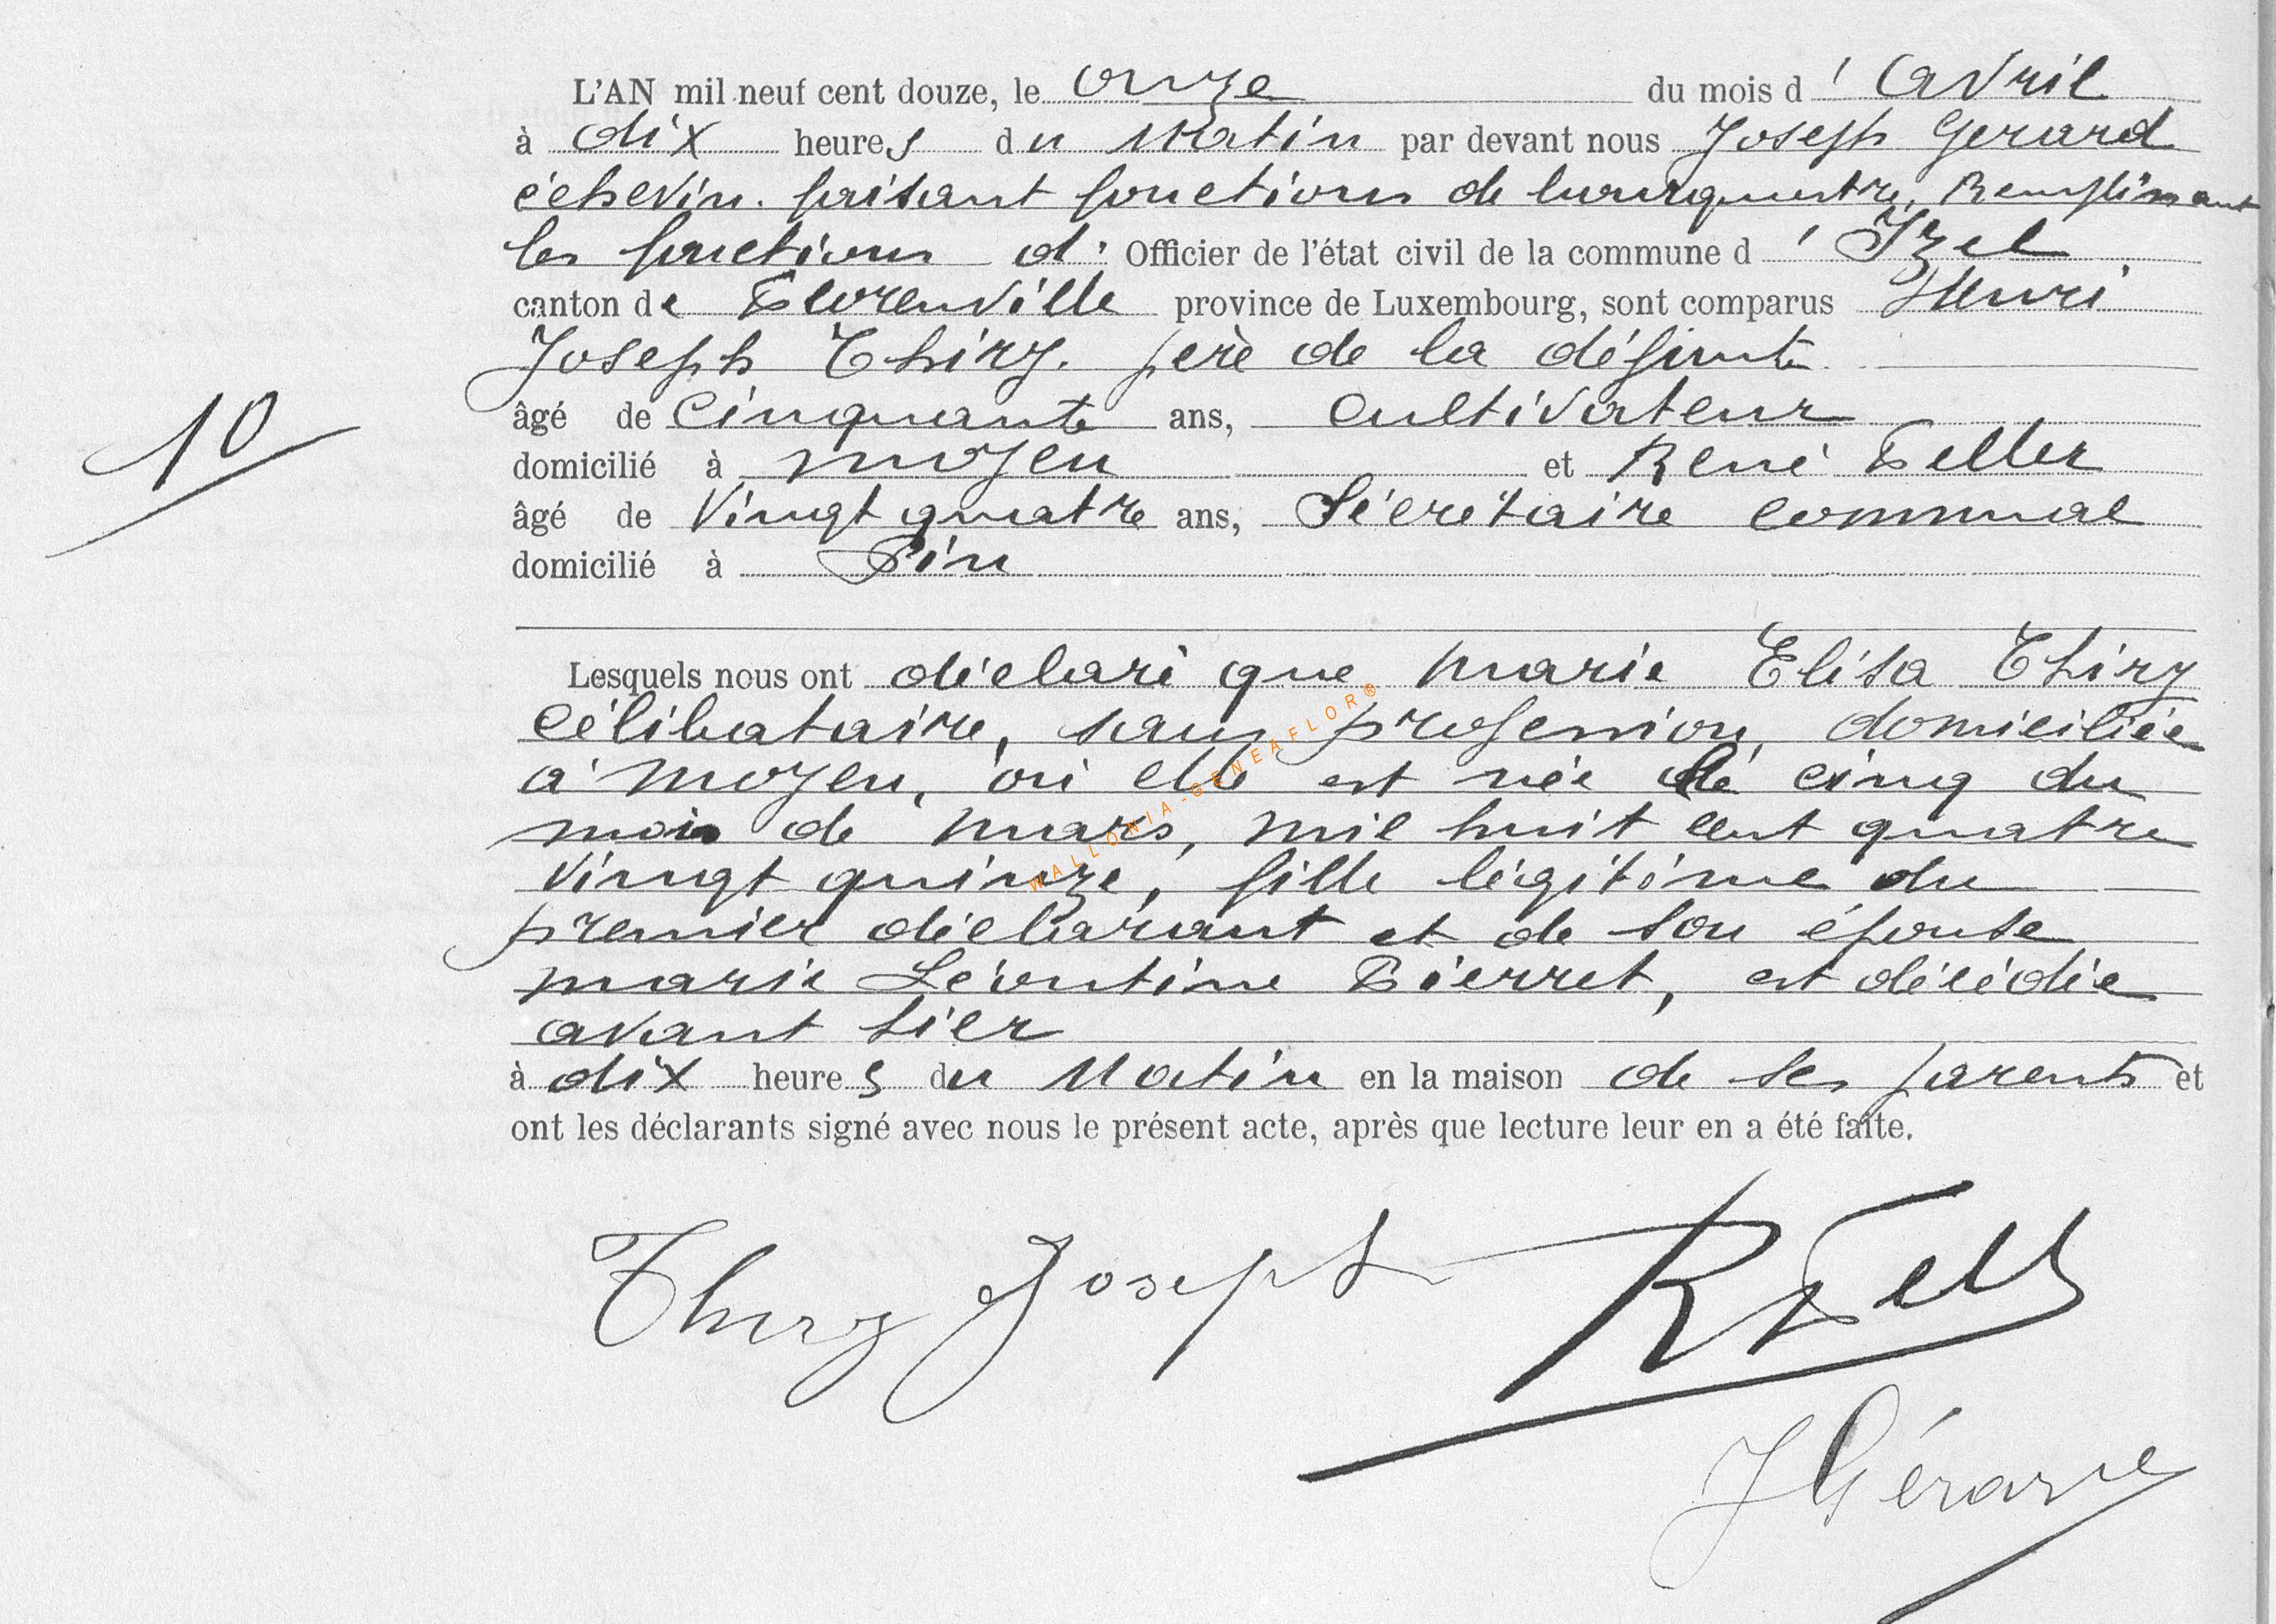 L'AN mil neuf cent douze, le onze du mois d' avril
à dix heures du matin par devant nous Joseph Gerard
échevin. faisant fonctions de bourgmestre, Remplissant
les fonctions d' Officier de l'état civil de la commune d' Izel
canton de Florenville province de Luxembourg, sont comparus Henri
Joseph Thiry. père de la défunte
10
âgé de cinquante ans, cultivateur
domicilié à moyen et René Feller
âgé de Vingt quatre ans, Sécrétaire communal
domicilié à Pin
Lesquels nous ont déclaré que marie Elisa Thiry
célibataire, sans profession, domiciliée
à moyen, où elle est née le cinq du
mois de mars, mil huit cent quatre
vingt quinze, fille légitime du
premier déclarant et de son épouse
marie Léontine Pierret, est décédée
avant hier
à dix heures du matin en la maison de ses parents et
ont les déclarants signé avec nous le présent acte, après que lecture leur en a été faite.
WALLONIA-GENEAFLOR®
Thiry Joseph R Feller
J Gérard